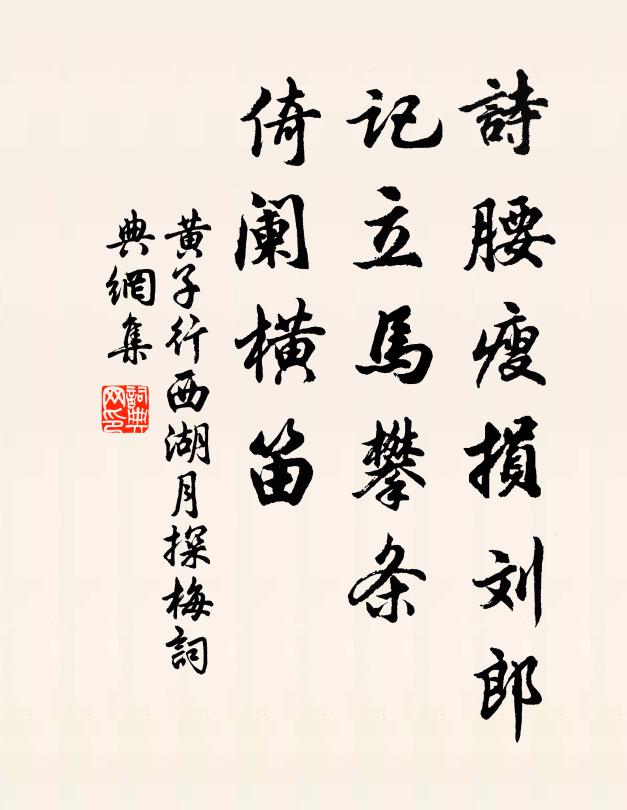 詩腰瘦損刘郎
记立馬攀条
倚阑横笛
黄子行西湖月探梅詞
典網集
詞典网印